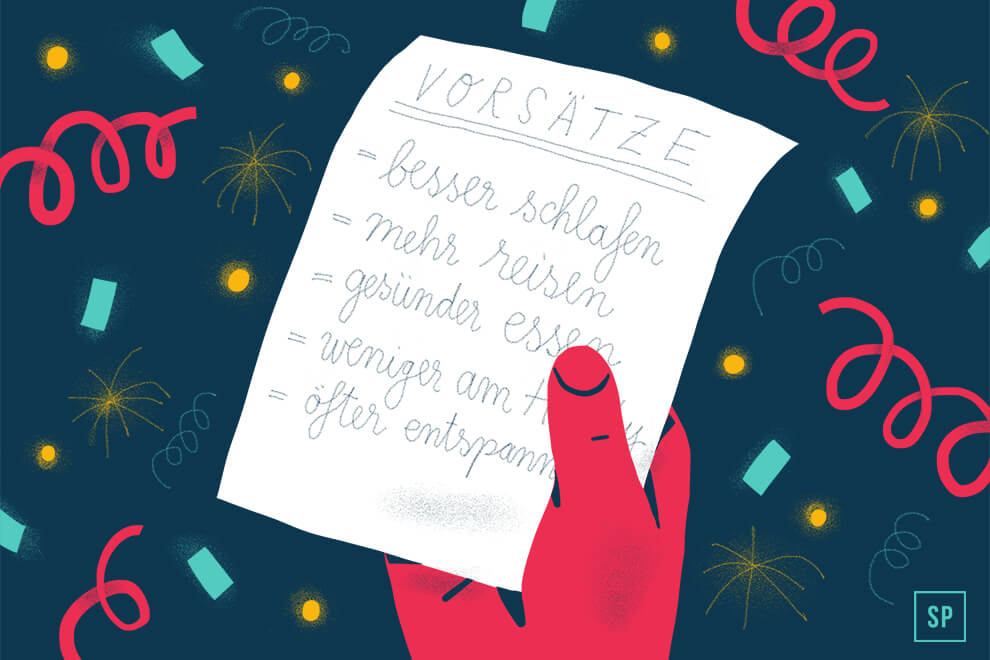 VORSÄTZE
= besser schlafen
= mehr reisen
= gesünder essen
= weniger am
= öfter
SP